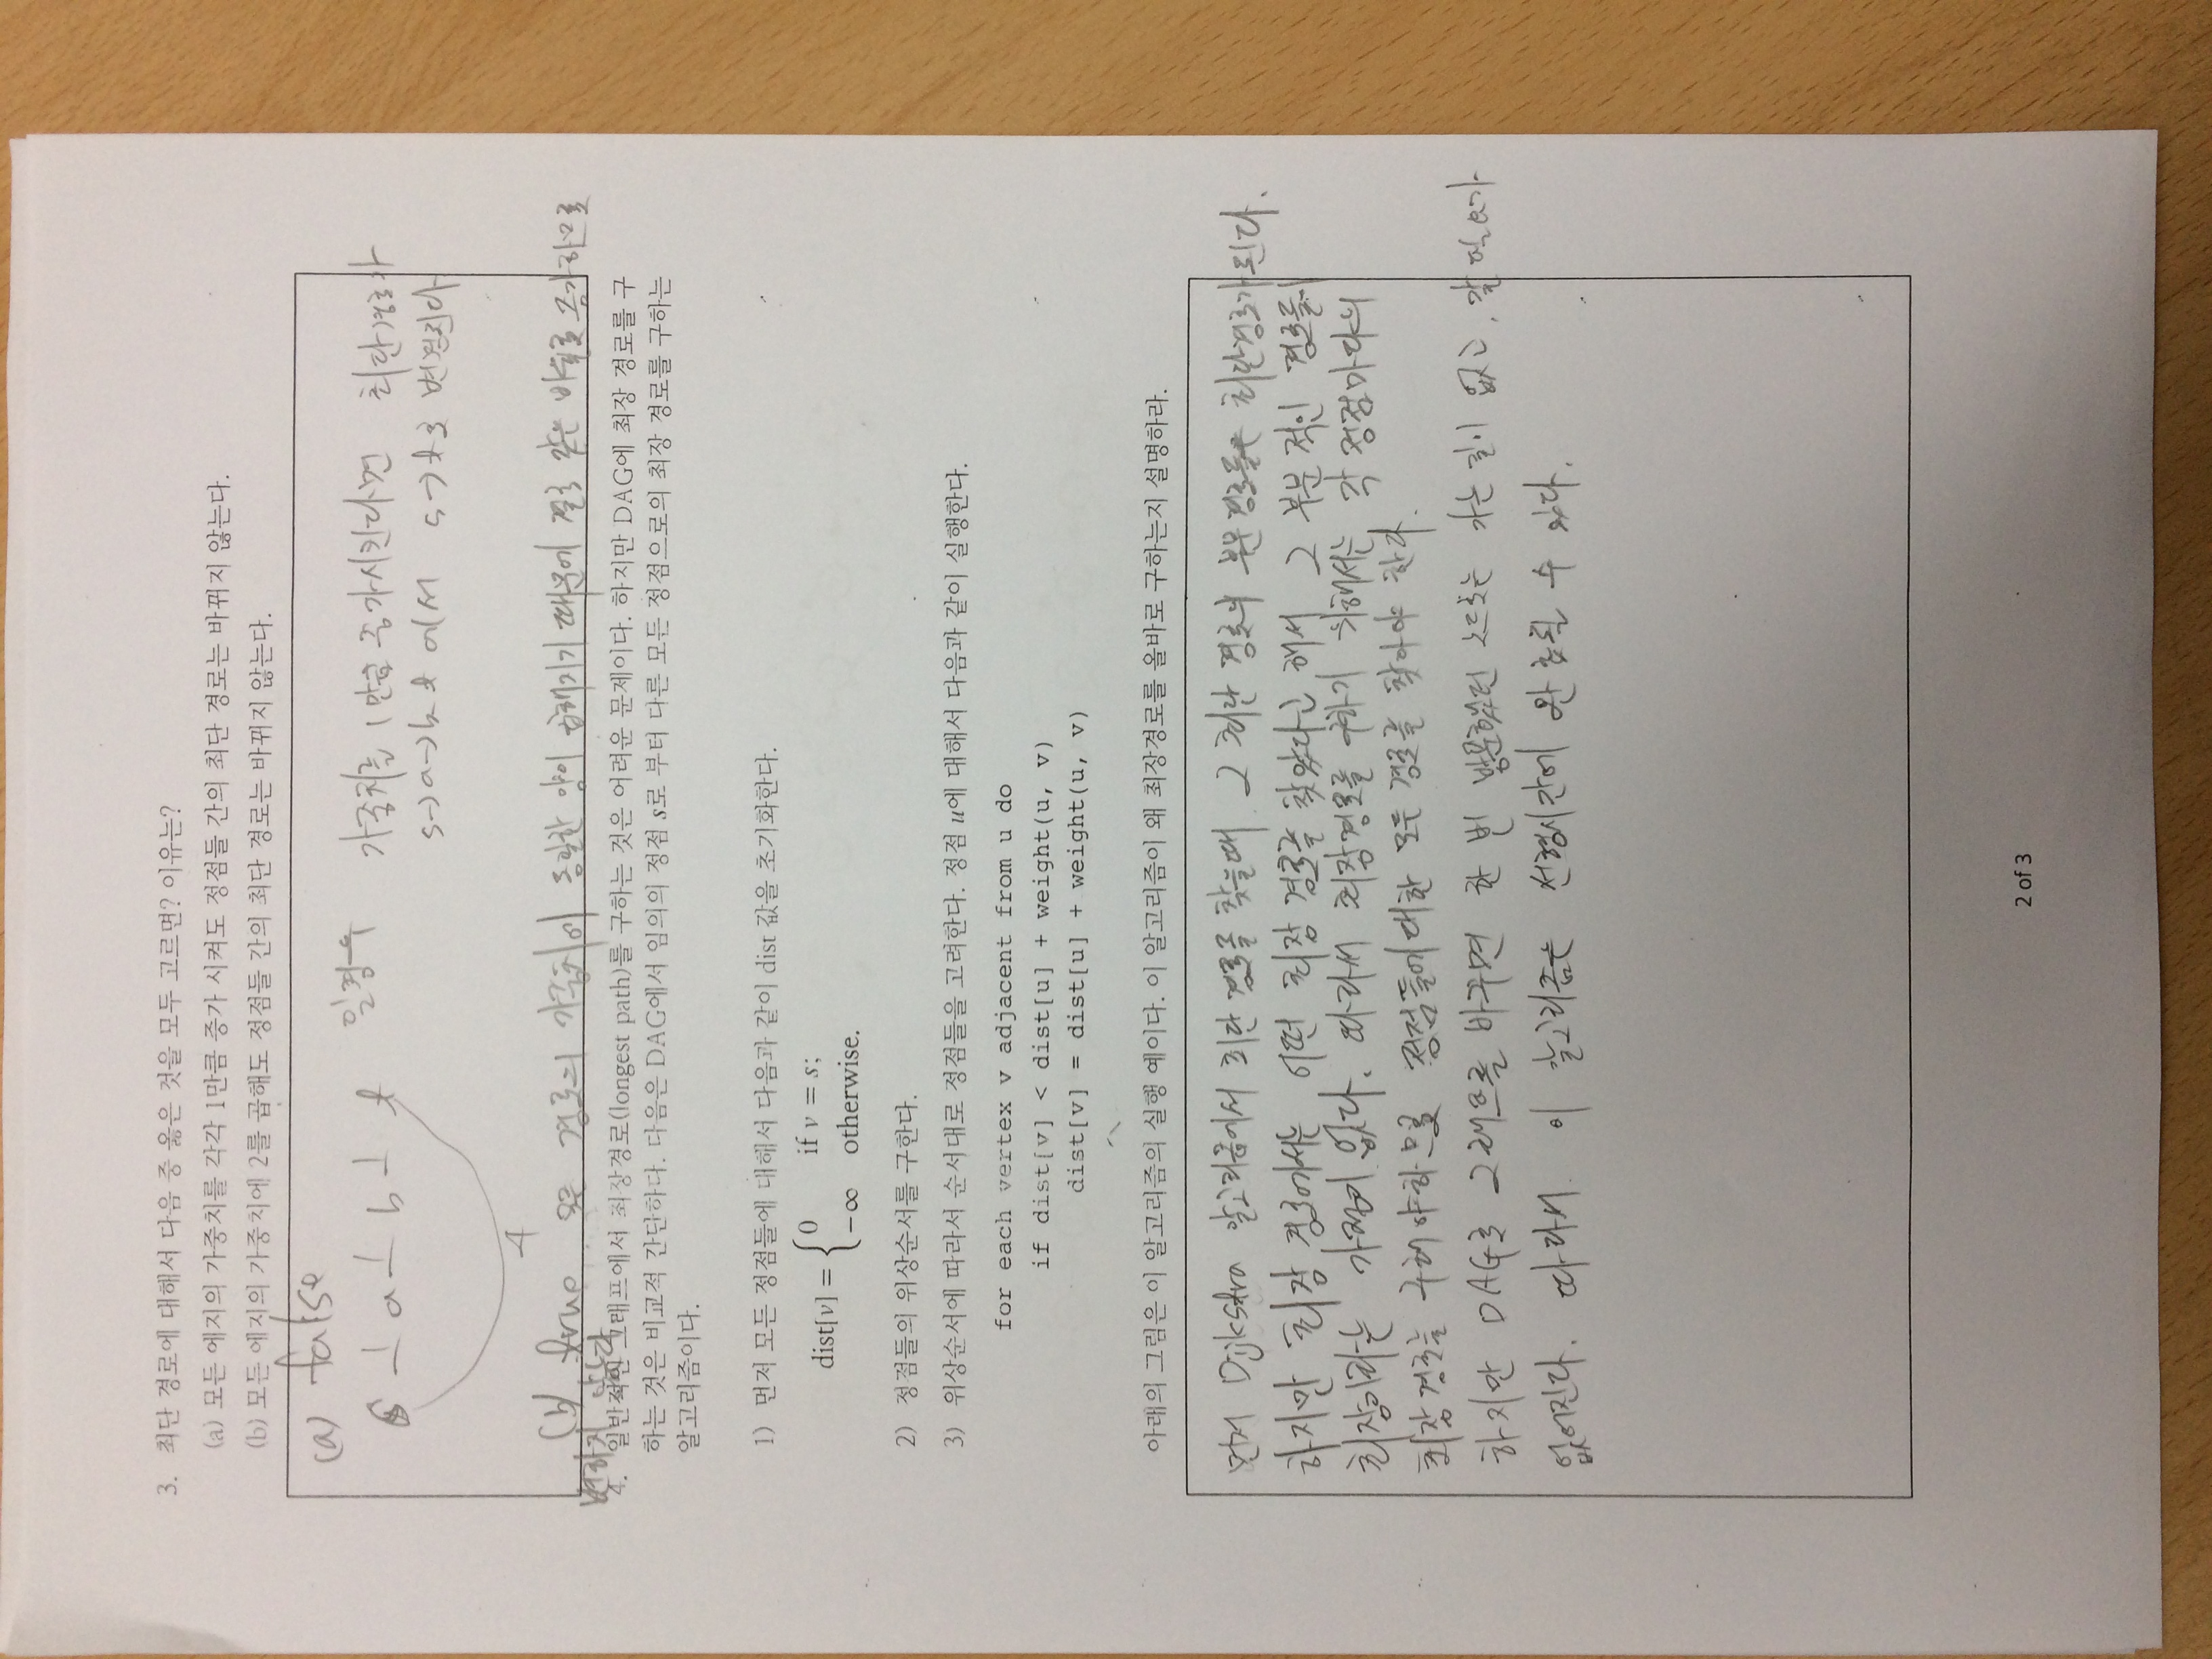 3. 최단 경로에 대해서 다음 중 옳은 것을 모두 고르면? 이유는?
(a) 모든 에지의 가중치를 각각 1만큼 증가 시켜도 정점들 간의 최단 경로는 바뀌지 않는다.
(b) 모든 에지의 가중치에 2를 곱해도 정점들 간의 최단 경로는 바뀌지 않는다.
(a) false
s 1 a 1 b 1 t
4
가중치를 1만큼 증가시킨다면 최단경로가
s→a→b t 에서 s→t로 변경된다
(b) true 모든 경로의 가중치에 동일한 양이 곱해지기 때문에 같은 증가하므로
변하지 않는다
4. 일반적인 그래프에서 최장경로(longest path)를 구하는 것은 어려운 문제이다. 하지만 DAG에 최장 경로를 구
하는 것은 비교적 간단하다. 다음은 DAG에서 임의의 정점 s로 부터 다른 모든 정점으로의 최장 경로를 구하는
알고리즘이다.
1) 먼저 모든 정점들에 대해서 다음과 같이 dist 값을 초기화한다.
dist[v] = { 0 if v = s;
−∞ otherwise.
2) 정점들의 위상순서를 구한다.
3) 위상순서에 따라서 순서대로 정점들을 고려한다. 정점 u에 대해서 다음과 같이 실행한다.
for each vertex v adjacent from u do
if dist[v] < dist[u] + weight(u, v)
dist[v] = dist[u] + weight(u, v)
아래의 그림은 이 알고리즘의 실행 예이다. 이 알고리즘이 왜 최장경로를 올바로 구하는지 설명하라.
먼저 Dijkstra 알고리즘에서 최단 경로를 찾을때 그 최단 경로의 부분경로들은 최단경로가 된다.
하지만 최장 경로에서는 어떤 최장 경로를 찾았다고 해서 그 부분적인 경로들이
최장이라는 가정이 없다. 따라서 최장경로를 구하기 위해서는 각 정점마다의
최장경로를 구해야하므로 정점들에 대한 모두 경로를 찾아야 한다.
하지만 DAG로 그래프를 바꾸면 한 번 방문했던 노드로는 가는 길이 없고, 갈 필요가
없어진다. 따라서 이 알고리즘은 선형시간에 완료될 수 있다.
2 of 3